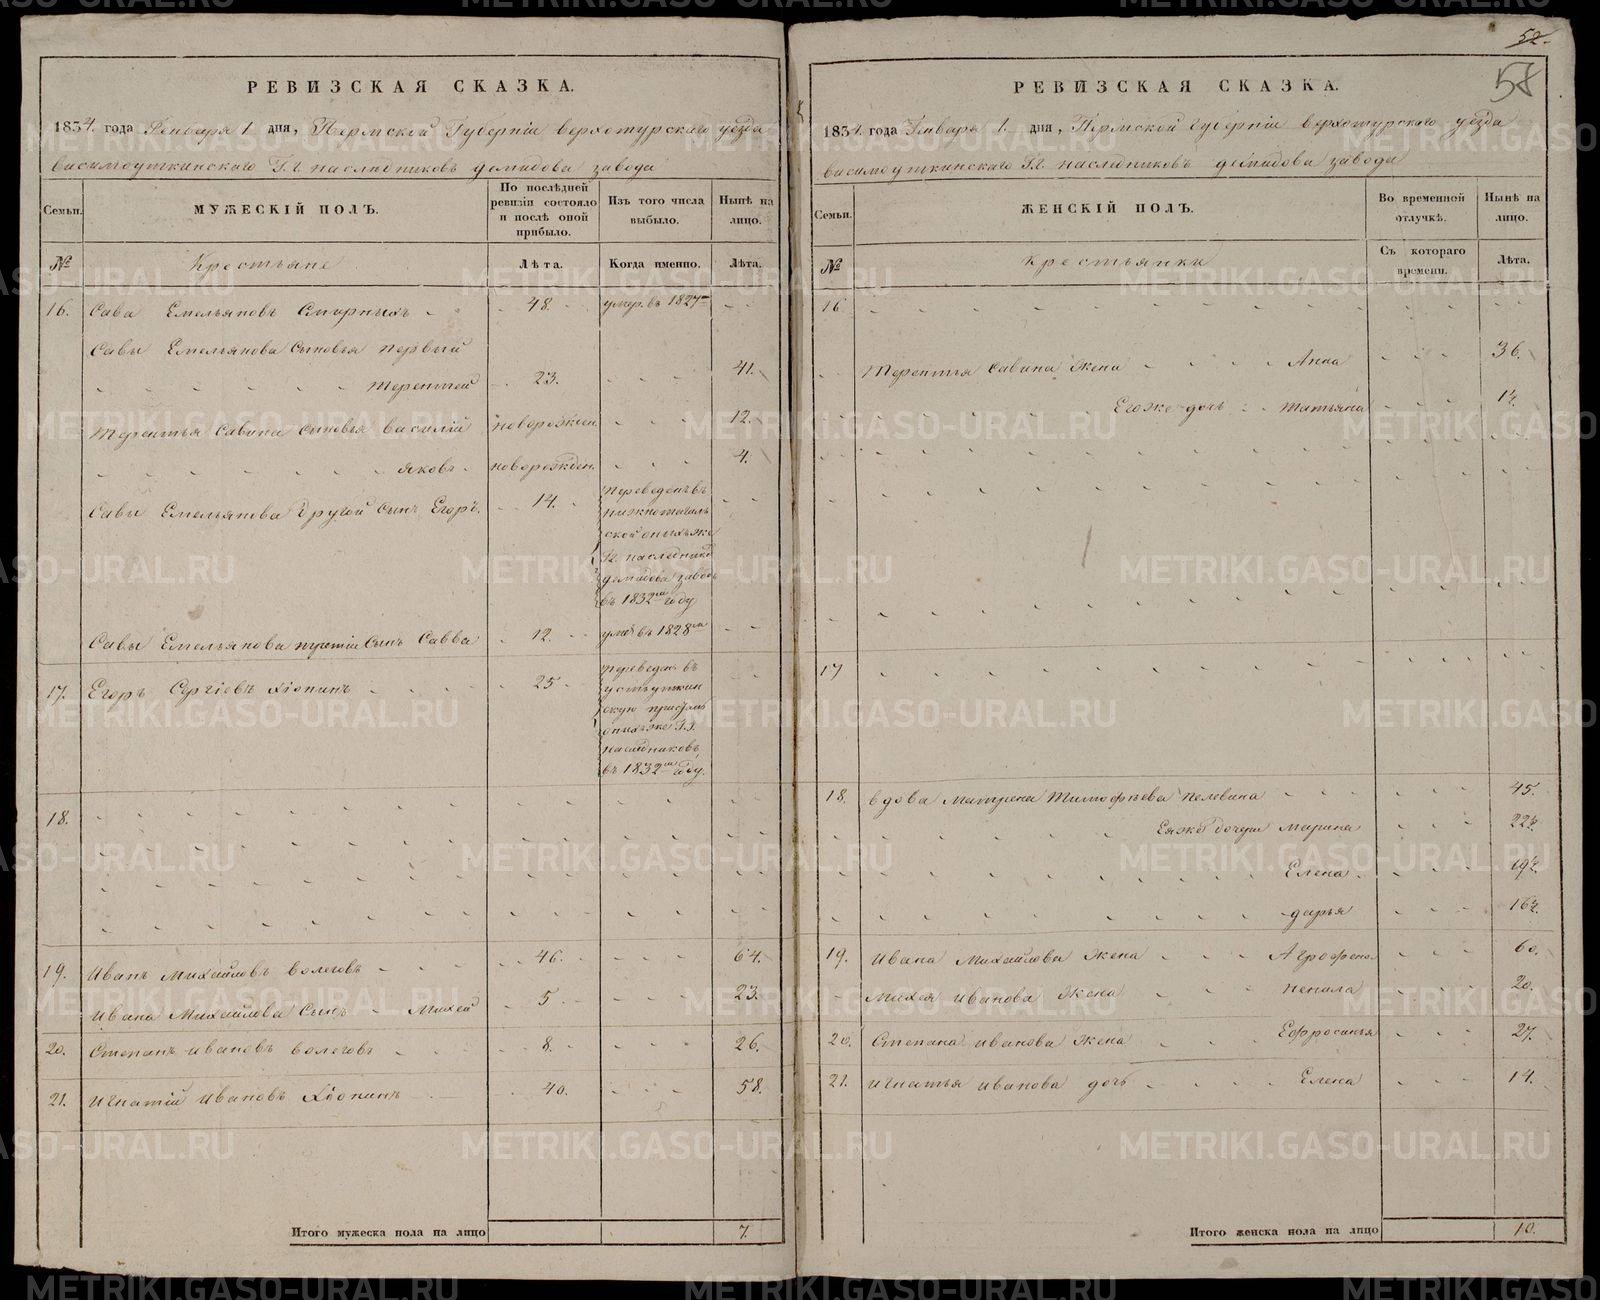 РЕВИЗСКАЯ СКАЗКА.
1834. года Генваря 1 дня, Пермской Губерніи верхотурскаго уезда
висимоуткинскаго Г.г. наследниковъ демидова завода
Семьи.
МУЖЕСКІЙ ПОЛЪ.
По послѣдней ревизіи состояло и послѣ оной прибыло.
Изъ того числа выбыло.
Нынѣ на лицо.
№
Крестьяне
Лѣта.
Когда именно.
Лѣта.
16. Сава Емельяновъ Смирныхъ 48. умер. въ 1827
Савы Емельянова сыновья первый
терентей 23. 41.
терентья Савина сыновья василій новорожден. 12.
яковъ новорожден. 4.
Савы Емельянова другой сынъ Егоръ. 14. переведенъ въ
нижнотагиль
ской оныхъ же
Гг. наследник
демидова завод
въ 1832 году
Савы Емельянова третій сынъ Савва 12. уме въ 1828
17. Егоръ Сергіевъ Хіопинъ 25 переведен въ
усть уткин
скую пристань
оныхъ же Г.г.
наследниковъ
въ 1832 году.
18.
19. Иванъ Михайловъ волеговъ 46. 64.
Ивана Михайлова сынъ Михей 5 23.
20. Степанъ ивановъ волеговъ 8. 26.
21. игнатій ивановъ Хіопинъ 40. 58.
Итого мужеска пола на лицо 7.
52.
58
РЕВИЗСКАЯ СКАЗКА.
1834. года Генваря 1. дня, Пермской губерніи верхотурскаго уезда
висимоуткинскаго Г.г. наследниковъ демидова завода
Семьи.
ЖЕНСКІЙ ПОЛЪ.
Во временной отлучкѣ.
Нынѣ на лицо.
№
крестьянки
Съ котораго времени.
Лѣта.
16
терентья савина жена Анна 36.
Егоже дочь татьяна 14.
17
18. вдова Матрена Тимофеева пелевина 45.
Еяже дочери марина 22½.
Елена 19½.
дарья 16½.
19. ивана михайлова жена Агрофена 60.
михея иванова жена ненила 20.
20. Степана иванова жена Ефросинья 27.
21. игнатья иванова дочь Елена 14.
Итого женска пола на лицо 10.
METRIKI.GASO-URAL.RU